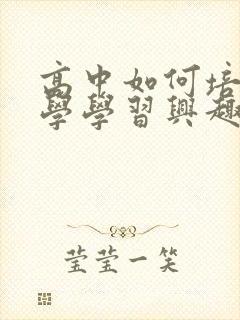 高中如何培
學學習興趣
莹莹一笑